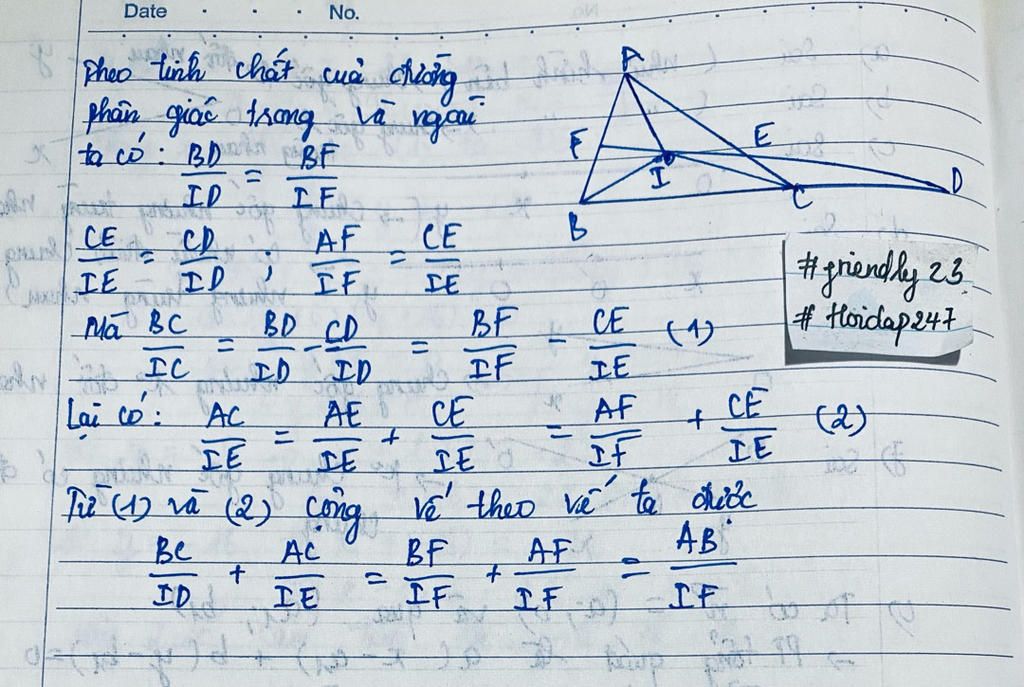 Date . . . No.
Theo tính chất của đường
phân giác trong và ngoài
ta có: BD/ID = BF/IF
CE/IE = CD/ID, AF/IF = CE/IE
Mà BC/IC = BD/ID - CD/ID = BF/IF - CE/IE (1)
Lại có: AC/IE = AE/IE + CE/IE = AF/IF + CE/IE (2)
Từ (1) và (2) cộng vế theo vế ta được
BC/ID + AC/IE = BF/IF + AF/IF = AB/IF
A
F
E
I
D
B
C
#friendly 23
# Hoidap247